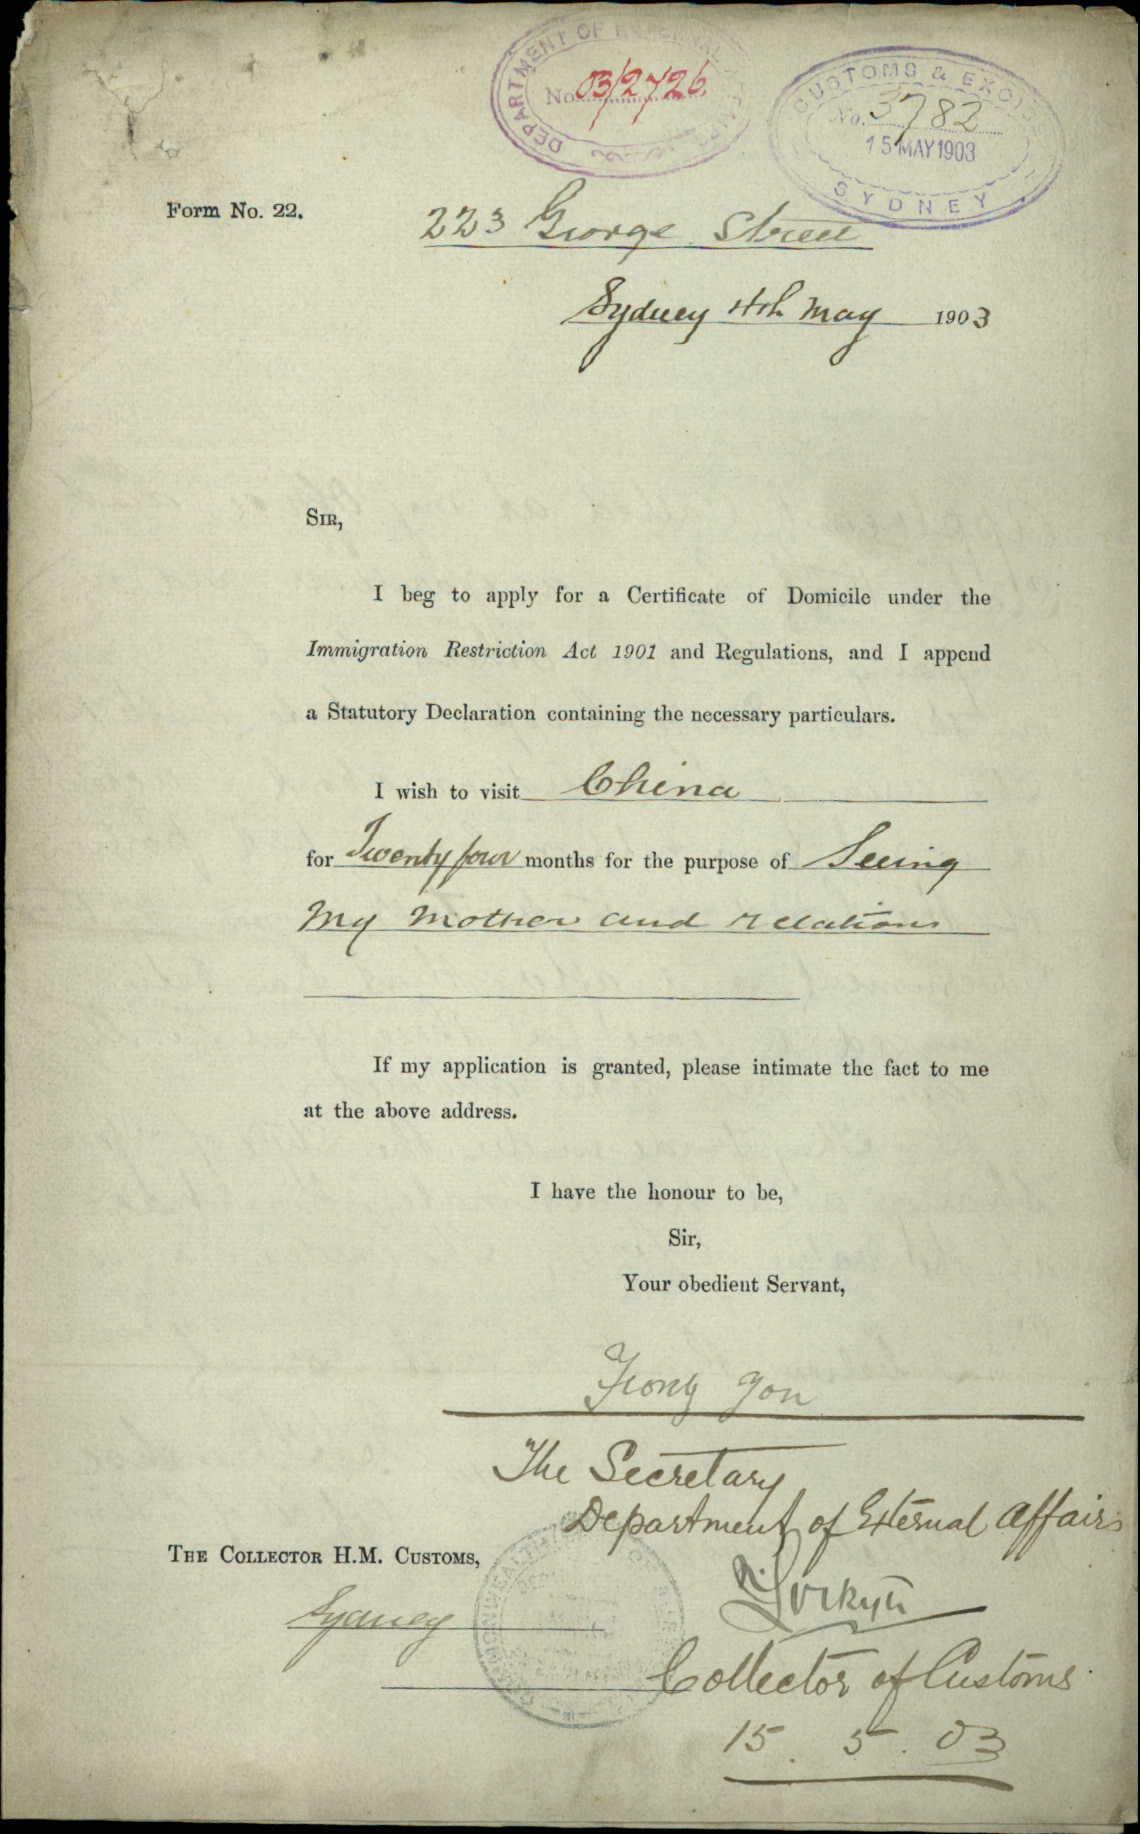 DEPARTMENT OF EXTERNAL
No. 03/2726
CUSTOMS & EXCISE
No. 3782
15 MAY 1903
SYDNEY
Form No. 22.
223 George Street
Sydney 4th May 1903
SIR,
I beg to apply for a Certificate of Domicile under the
Immigration Restriction Act 1901 and Regulations, and I append
a Statutory Declaration containing the necessary particulars.
I wish to visit China
for Twenty four months for the purpose of Seeing
My Mother and relations
If my application is granted, please intimate the fact to me
at the above address.
I have the honour to be,
Sir,
Your obedient Servant,
Yon
The Secretary
Department of External Affairs
THE COLLECTOR H.M. CUSTOMS,
Sydney
Collector of Customs
15. 5. 03